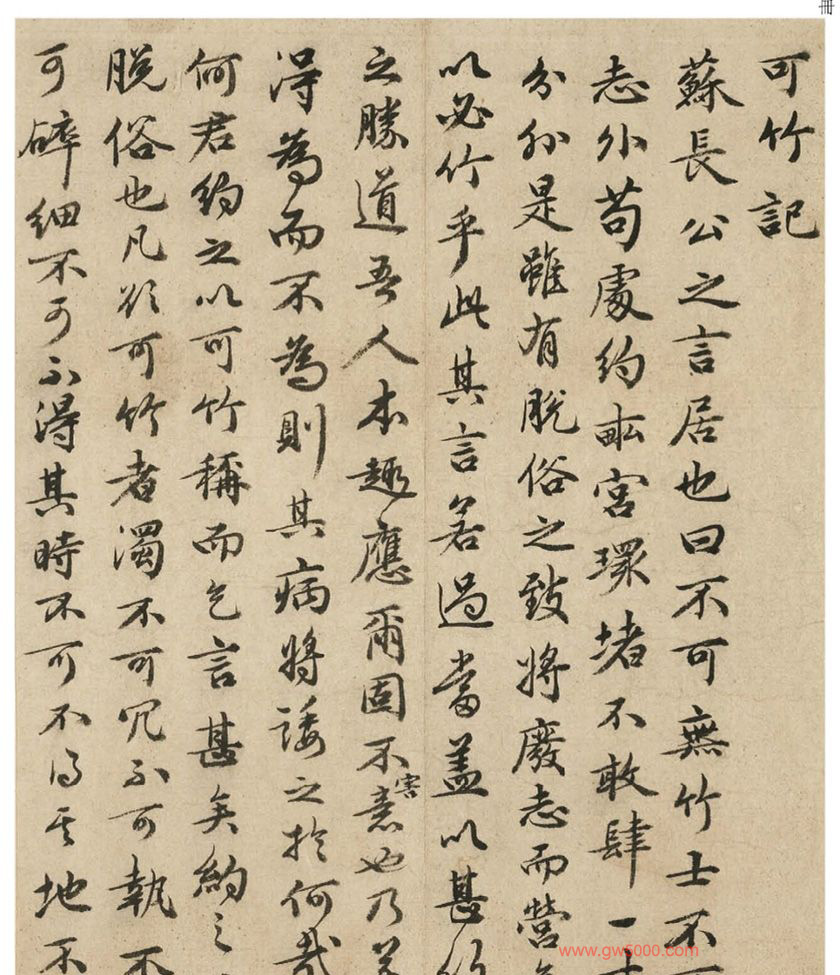 冊
可竹記
蘇長公之言居也曰不可無竹士不可
志外苟處約畝宮環堵不敢肆一
分外是雖有脫俗之致將廢志而營
以必竹乎此其言若過當蓋以甚
之勝道吾人本趣應爾固不害意也乃
得為而不為則其病將諉之於何哉
何君約之以可竹稱而乞言甚矣約之
脫俗也凡欲可竹者濁不可冗不可執不
可碎細不可不得其時不可不得其地不
www.gw5000.com